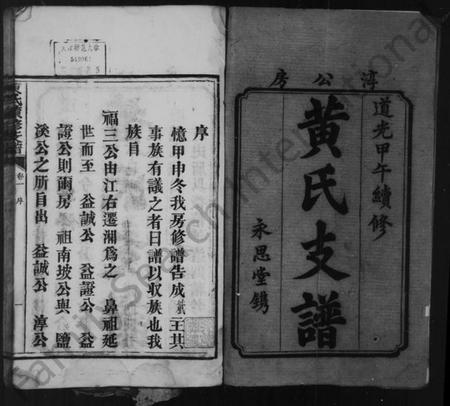 淳公房
道光甲午續修
黄氏支譜
永思堂鐫
序
憶甲申冬我房修譜告成
王其
事族有議之者曰譜以收族也我
族自
福三公由江右遷湘爲之 鼻祖延
世而至 益誠公 益證公 益
證公則爾房 祖南坡公與 鹽
溪公之所自出 益誠公 淳公
卷一 序